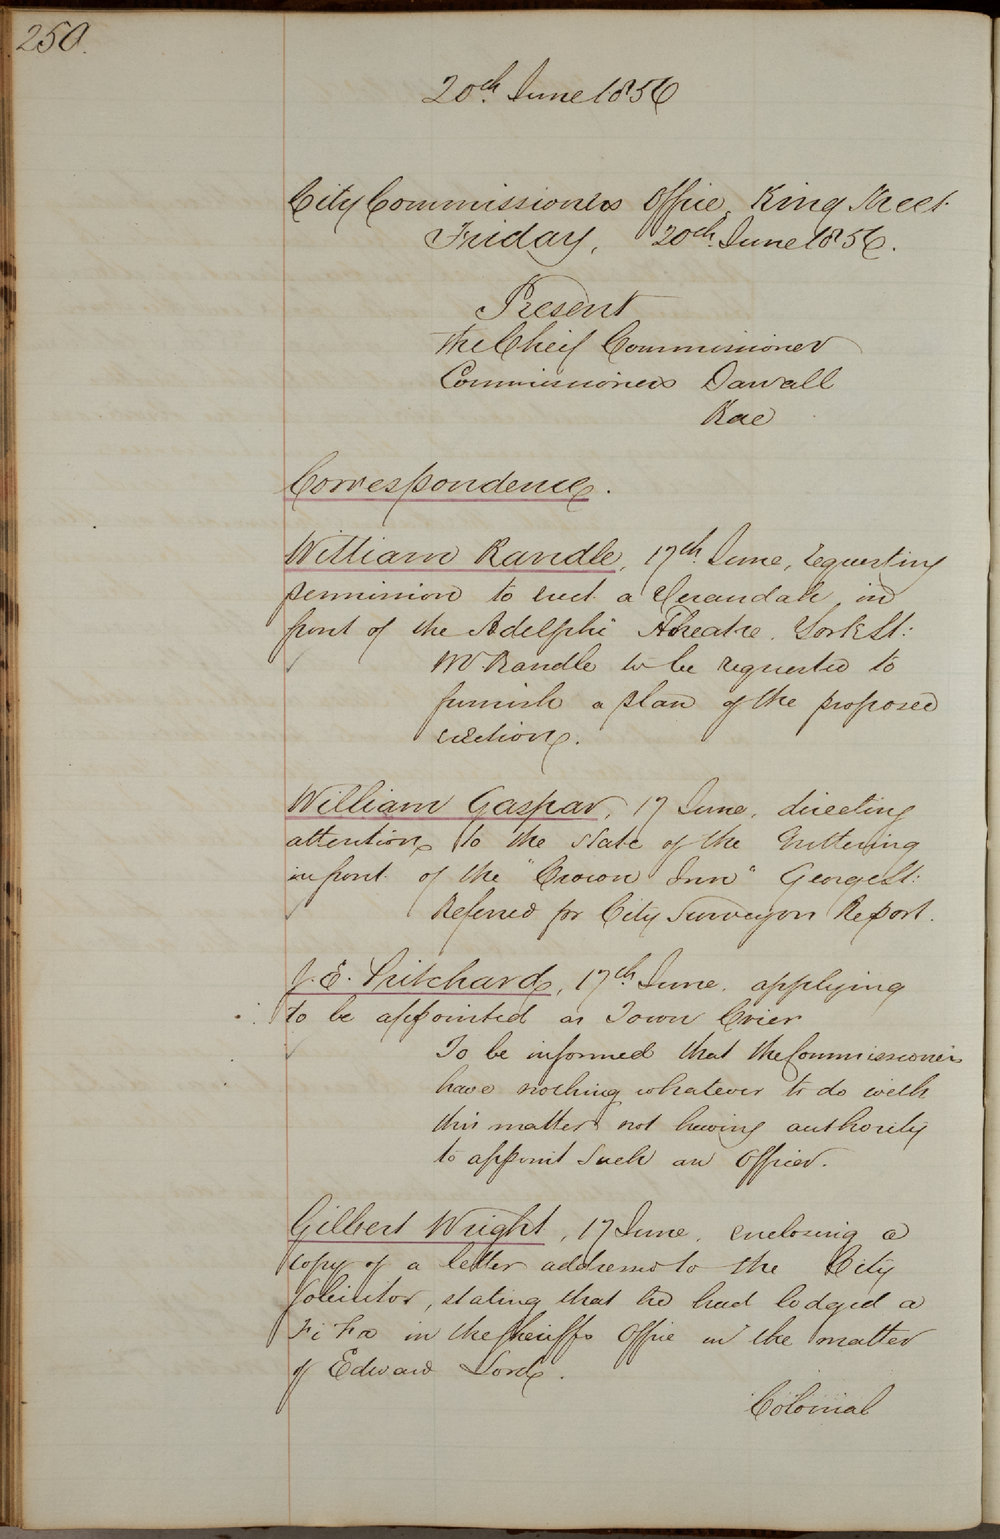 250.
20th June 1856
City Commissioners Office King Street
Friday, 20th June 1856.
Present
The Cheif Commissioner
Commissioners Darvall
Rae
Correspondence.
William Randle, 17th June, requesting
permission to erect a Verandah in
front of the Adelphi Theatre. York St:
Mr Randle to be requested to
furnish a plan of the proposed
erection.
William Gaspar, 17 June, directing
attention to the state of the Guttering
in front of the "Crown Inn" George St:
Referred for City Surveyors Report.
J. E. Pritchard, 17th June, applying
to be appointed as Town Crier
To be informed that the Commissioners
have nothing whatever to do with
this matter not having authority
to appoint such an Officer.
Gilbert Wright, 17 June, enclosing a
copy of a letter addressed to the City
Solicitor, stating that he had lodged a
Fi Fa in the Sheriffs Office in the matter
of Edward Lord.
Colonial